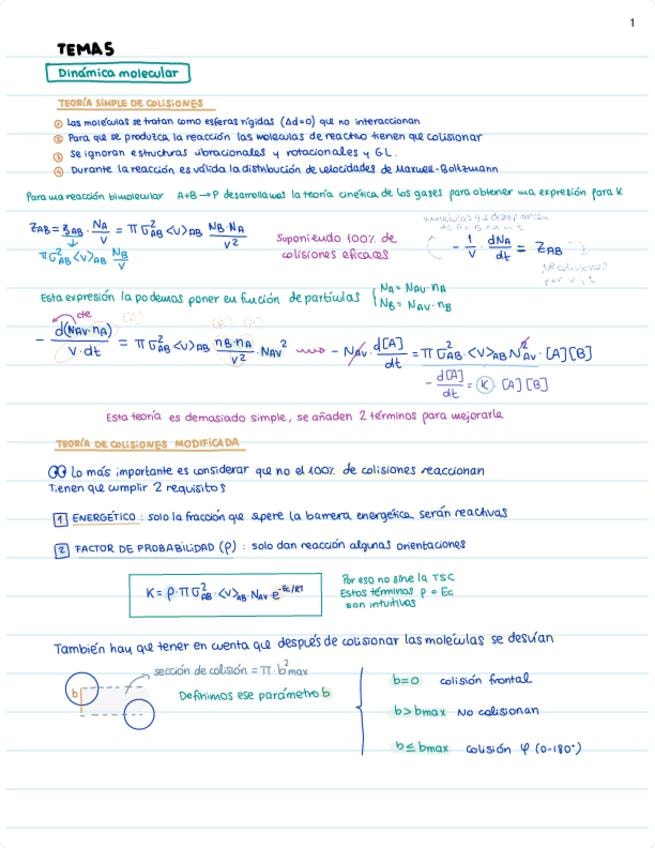 1
TEMA 5
Dinámica molecular
TEORÍA SIMPLE DE COLISIONES
① Las moléculas se tratan como esferas rígidas (Δd=0) que no interaccionan
② Para que se produzca la reacción las moleculas de reactivo tienen que colisionar
③ Se ignoran estructuras vibracionales y rotacionales y GL.
④ Durante la reacción es válida la distribución de velocidades de Maxwell-Boltzmann
Para una reacción bimolecular A+B→P desarrollamos la teoría cinética de los gases para obtener una expresión para K
Z_AB = z_AB · N_A/V = π σ²_AB <v>_AB N_B·N_A/V²
π σ²_AB <v>_AB N_B/V
Suponiendo 100% de
colisiones eficaces
- 1/V · dN_A/dt = Z_AB
Nº colisiones
por V, t
Esta expresión la podemos poner en función de partículas { N_A = N_AV · n_A
N_B = N_AV · n_B
cte
- d(N_AV·n_A)/V·dt = π σ²_AB <v>_AB n_B·n_A/V² · N_AV² → - N_AV · d[A]/dt = π σ²_AB · <v>_AB N²_AV · [A][B]
- d[A]/dt = K · [A][B]
Esta teoría es demasiado simple, se añaden 2 términos para mejorarla
TEORÍA DE COLISIONES MODIFICADA
Lo más importante es considerar que no el 100% de colisiones reaccionan
Tienen que cumplir 2 requisitos
1 ENERGÉTICO : solo la fracción que supere la barrera energética serán reactivas
2 FACTOR DE PROBABILIDAD (ρ) : solo dan reacción algunas orientaciones
K = ρ·π σ²_AB · <v>_AB · N_AV e^-Ec/RT
Por eso no sirve la TSC
Estos términos ρ e Ec
son intuitivos
También hay que tener en cuenta que después de colisionar las moléculas se desvían
sección de colisión = π · b²max
b
Definimos ese parámetro b
b=0 colisión frontal
b>bmax No colisionan
b≤bmax colisión φ (0-180º)